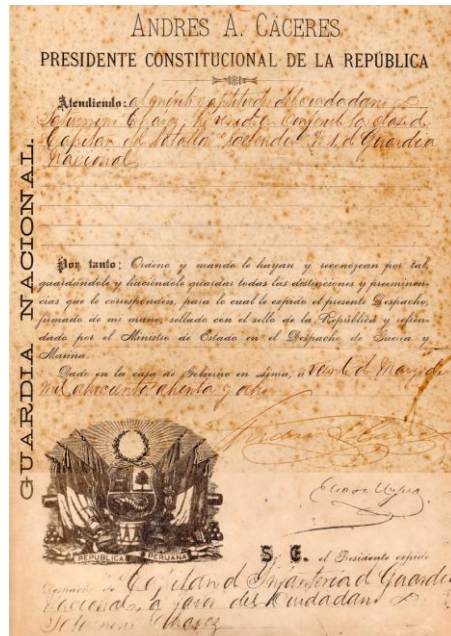 ANDRES A. CÁCERES
PRESIDENTE CONSTITUCIONAL DE LA REPÚBLICA
GUARDIA NACIONAL
Atendiendo: al mérito y aptitudes del ciudadano
Chavez, he venido en la clase de
Capitan del Batallon Guardia
Nacional
Por tanto: Ordeno y mando lo hayan y reconozcan por tal,
guardándole y haciéndole guardar todas las distinciones y preeminen-
cias que le corresponden, para lo cual le expido el presente Despacho,
firmado de mi mano, sellado con el sello de la República y refren-
dado por el Ministro de Estado en el Despacho de Guerra y
Marina.
Dado en la casa de Gobierno en Lima, á veinte de Marzo de
mil ochocientos ochenta y ocho
REPUBLICA PERUANA
S. E. el Presidente expide
Despacho de Capitan de Infanteria de Guardia
Nacional, a favor del Ciudadano
Chavez